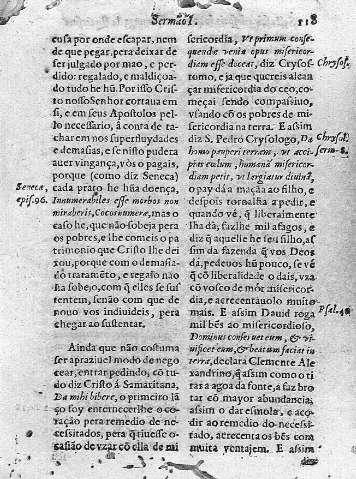 Sermão I. 118
cusa por onde escapar, nem
de que pegar, pera deixar de
ser julgado por mao, e perdido:
regalado, e maldiçoado
tudo he hũ. Por isso Cristo
nosso Senhor cortaua em
si, e em seus Apostolos pello
necessario, â conta de tachar
em nos superfluydades
e demasias, e se nisto pudera
auer vingança, vòs o pagais,
porque (como diz Seneca)
Seneca,
epis. 96.
cada prato he hũa doença,
Innumerabiles esse morbos non
miraberis, Cocos numera, mas o
caso he, que não sobeja pera
os pobres, e lhe comeis o patrimonio
que Cristo lhe deixou,
porque com o demasiado
tratamẽto, e regalo não
ha sobejo, com q̃ elles se sustentem,
senão com que de
nouo vos indiuideis, pera
chegar ao sustentar.
Ainda que não costuma
ser aprazíuel modo de negocear,
entrar pedindo, cõ tudo
diz Cristo á Samaritana,
Da mihi bibere, o primeiro lãço
foy enternecerlhe o coração
pera remedio de necessitados,
pera q̃ tiuesse ocasião
de vzar cõ ella de misericordia,
Vt primum consequendæ
veniæ opus misericordiam
esse doceat, diz Crysostomo,
Chrysost.
e ja que quereis alcançar
misericordia do ceo, começai
sendo compassiuo,
vsando cõ os pobres de misericordia
na terra. E assim
diz S. Pedro Crysologo, Da
Chrysol.
serm. 8.
homo pauperi terram, vt accipias
cœlum, humanâ misericordiam
petit, vt largiatur diuinã,
o pay dá a maçãa ao filho, e
despois tornalha a pedir, e
quando vé, q̃ liberalmente
lha dà, fazlhe mil afagos, e
diz q̃ aquelle he seu filho, assim
da fazenda q̃ vos Deos
dá, pedeuos hũ pouco, se vé
q̃ cõ liberalidade o dais, vza
cõ vosco de mòr misericordia,
e acrecentauolo muito
mais. E assim Dauid roga
Psal. 40.
mil bẽs ao misericordioso,
Dominus conseruet eum, & viuificet
eum, & beatum faciat in
terra, declara Clemente Alexandrino,
q̃ assim como o tirar
a agoa da fonte, a faz brotar
cõ mayor abundancia,
assim o dar esmola, e acodir
ao remedio do necessitado,
acrecenta os bẽs com
muita ventajem. E assim